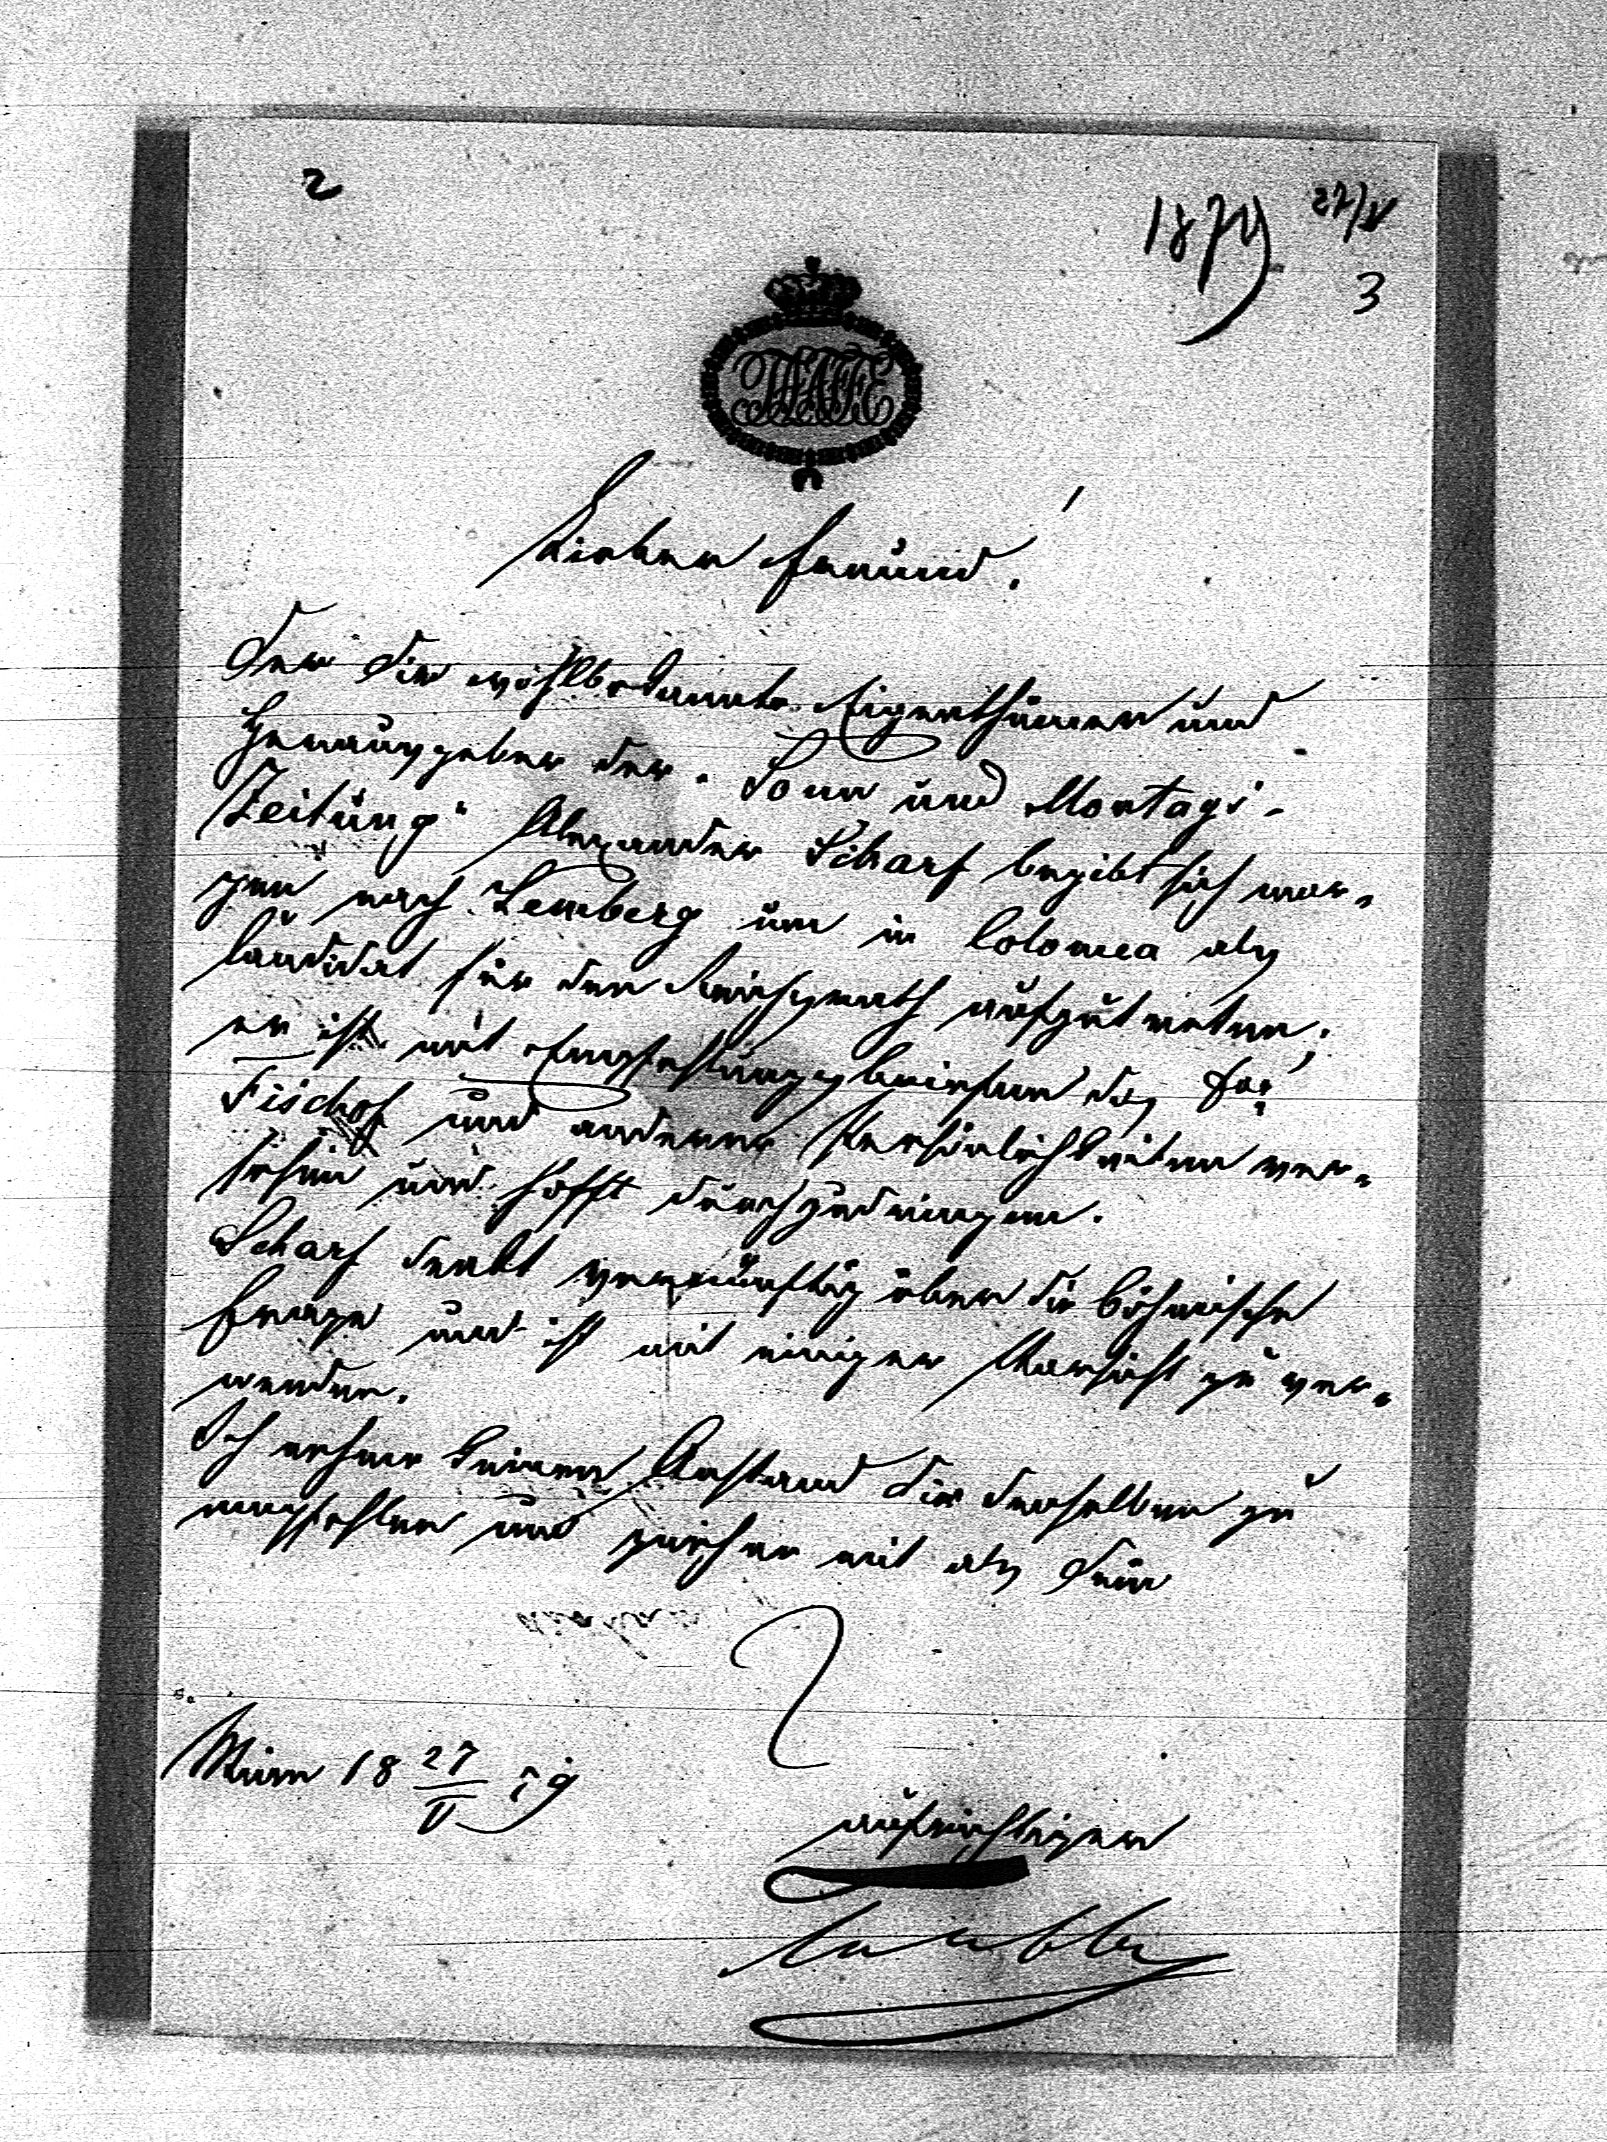 2
1879 27/V
3
TAAFFE
Lieber Freund!
Der Dir wohlbekannte Eigenthümer und
Herausgeber der "Sonn und Montags-
Zeitung" Alexander Scharf begibt sich mor-
gen nach Lemberg um in Colomea als
Candidat für den Reichsrath aufzutreten;
er ist mit Empfehlungsbriefen des
Fischhof und anderer Persönlichkeiten ver-
sehen und hofft durchzudringen.
Scharf denkt vernünftig über die böhmische
Frage und ist mit einiger Vorsicht zu ver-
wenden.
Ich nehme keinen Anstand Dir denselben zu
empfehlen und zeichne mit als Dein
Wien 18 27/V 79
aufrichtiger